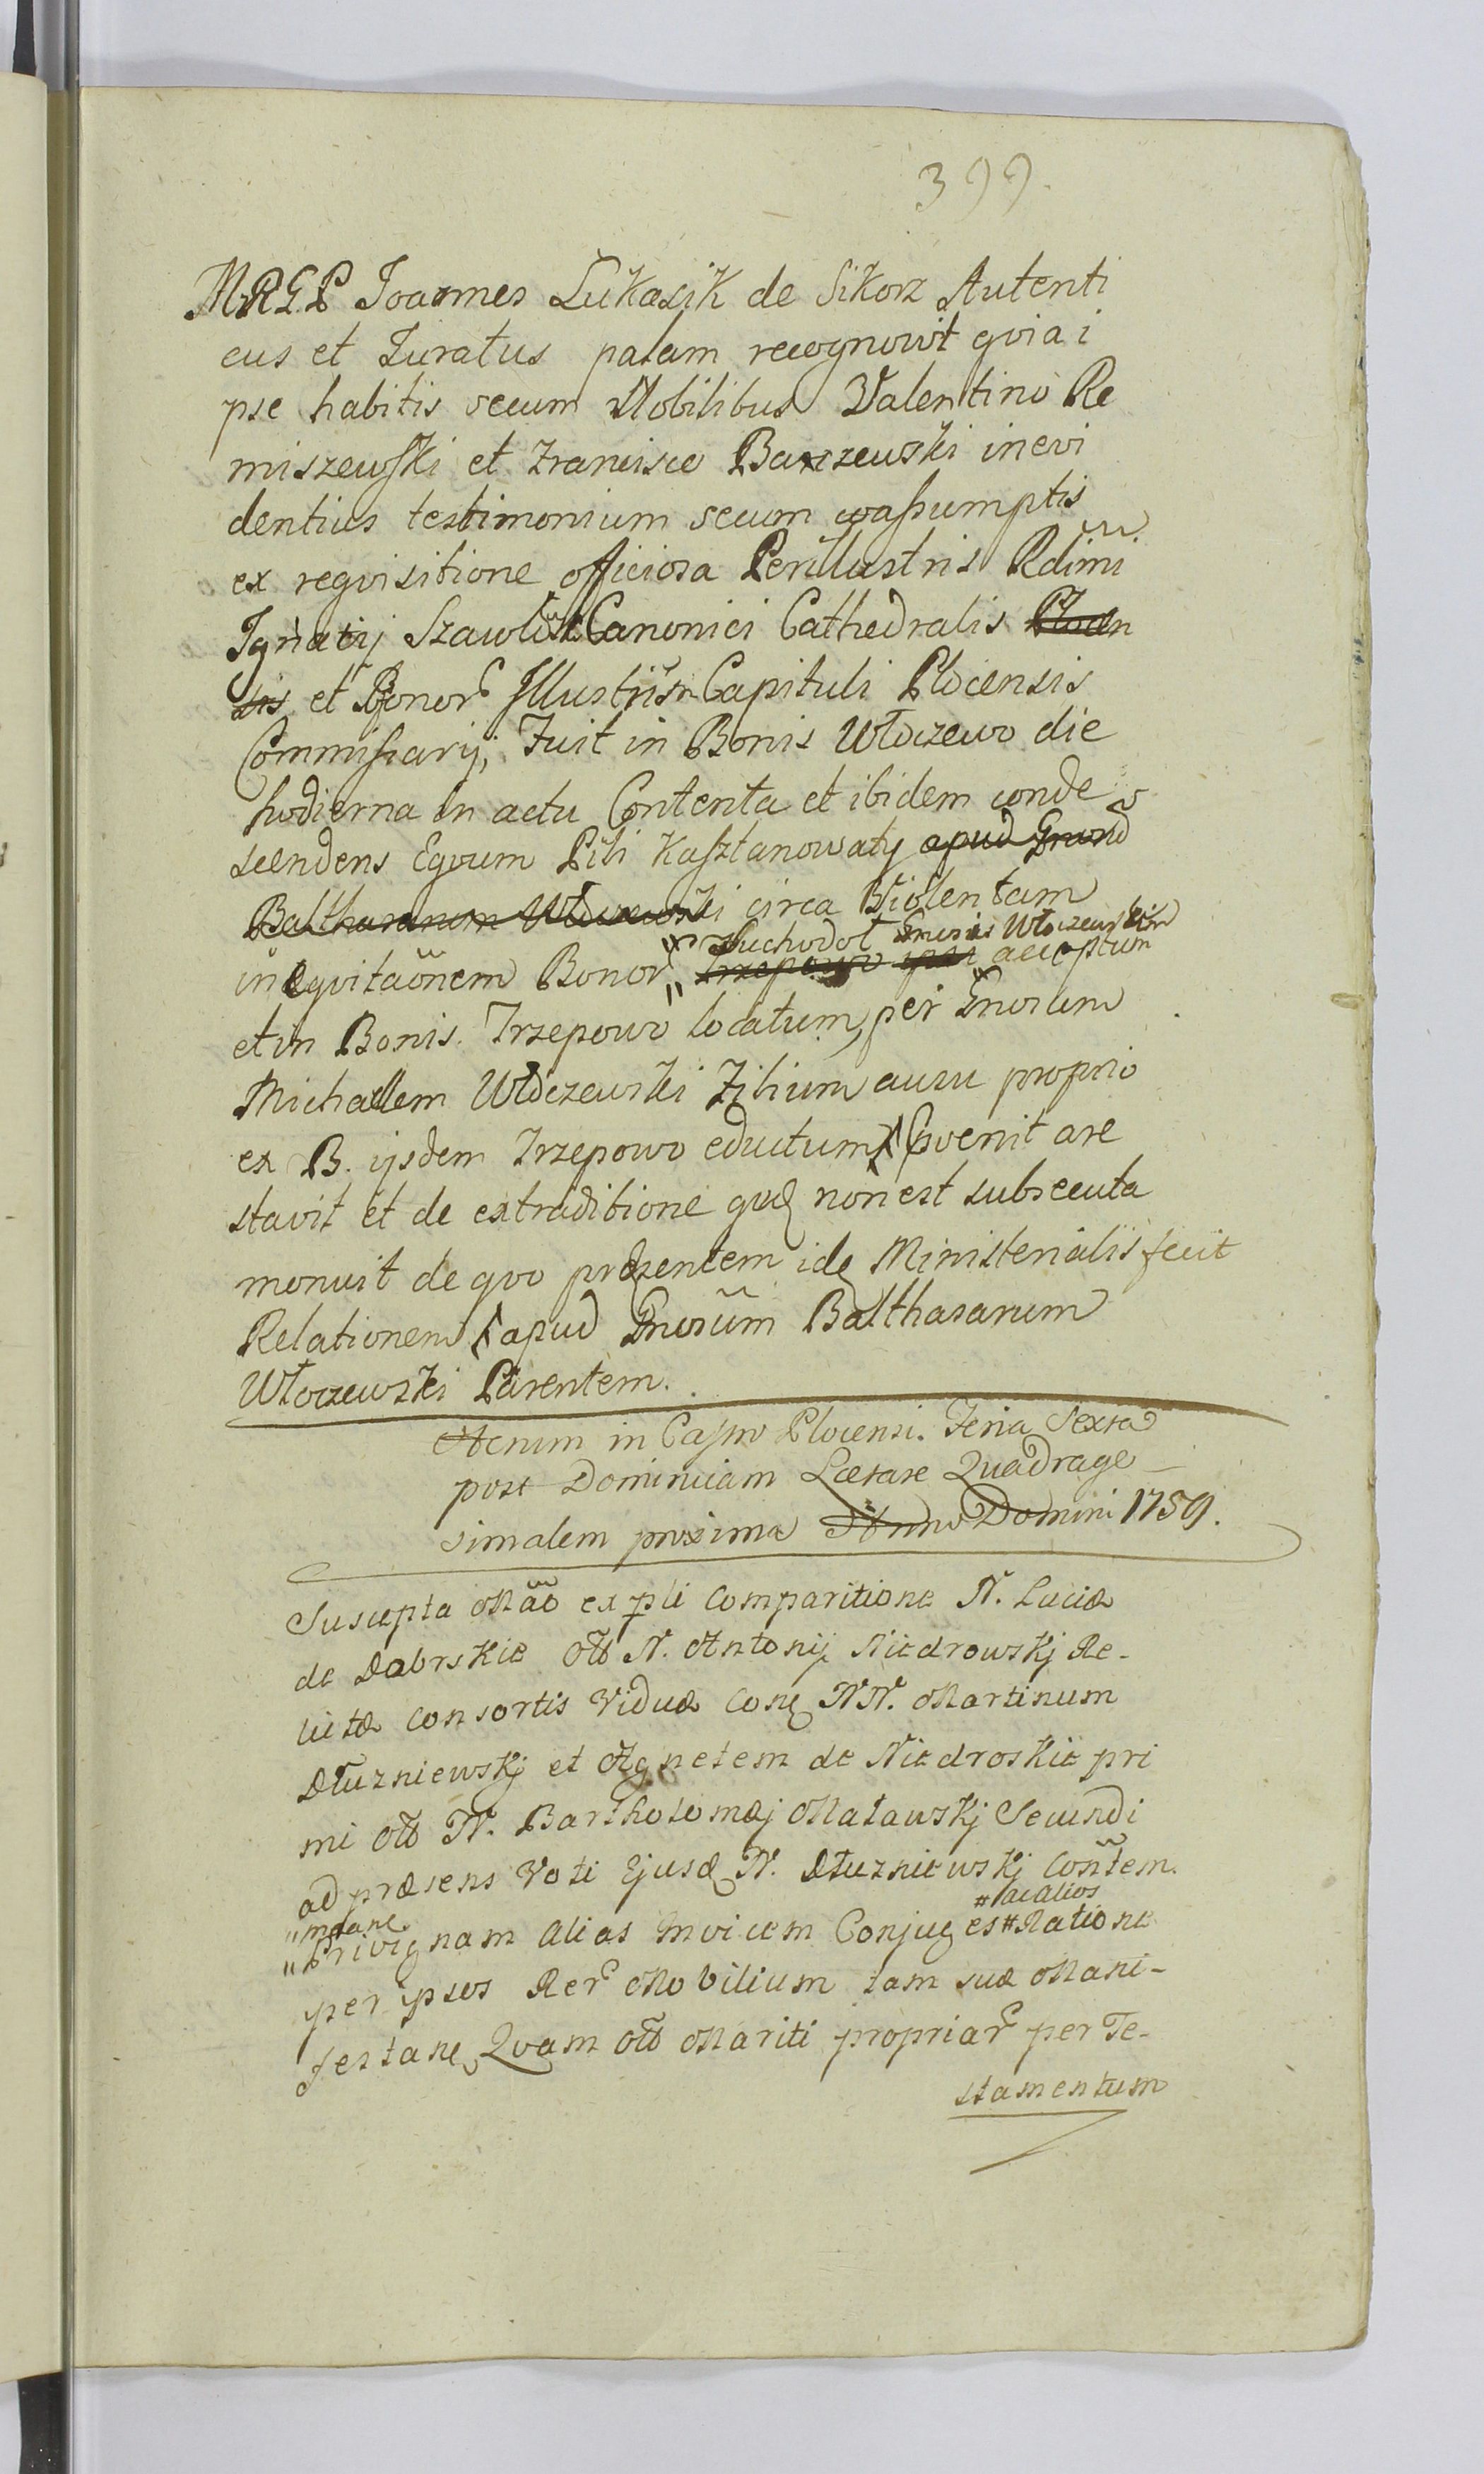 399.
MRGP Joannes Łukasik de Sikorz Autenti
cus et Juratus palam recognowit qvia i
pse habitis secum Nobilibus Valentino Re
miszewski et Francisco Barszewski in evi
dentius testimonium secum coassumptis
ex reqvisitione officiosa Perillustris Rdimi
Ignatij Szawłoski Canonici Cathedralis Plocen
sis et Bonor Illustrism Capituli Plocensis
Commissarij, Fuit in Bonis Włoczewo die
hodierna in actu Contenta et ibidem conde
scendens Eqvum Pili Kasztanowaty apud Gnrosd
Balthasarum Włoczewski circa Violentam
ineqvitaonem Bonor Trzepowo ipsi acceptum
Suchodoł Gnrosis Włoczewskim
et in Bonis Trzepowo locatum, per Gnrosum
Michaelem Włoczewski Filium ausu proprio
ex B. ijsdem Trzepowo eductum Invenit are
stavit et de extraditione qvę non est subsecuta
monuit de qvo pręzentem idę Ministerialis fecit
Relationem apud Gnrosum Balthasarum
Włoczewski Parentem.
Actum in Castro Plocensi. Feria Sexta
post Dominicam Lætare Quadrage
simalem proxima Anno Domini 1759.
Suscepta Mao ex pli Comparitione N. Luciæ
de Dabrskie Ol N. Antonij Niedrowskj Re-
lictæ consortis Viduæ conę NN. Martinum
Dłuzniewskj et Agnetem de Niedroskie pri
mi Ol N. Bartholomæj Matawskj Secundi
ad præsens Voti Ejusdę N. Dłuzniewskj Contem.
" mtane # ac alios
" Privignam alias Invicem Conjuges # Ratione
per ipsos Rer Mobilium tam suæ Mani-
festane Qvam Ol Mariti propriar per Te-
stamentum